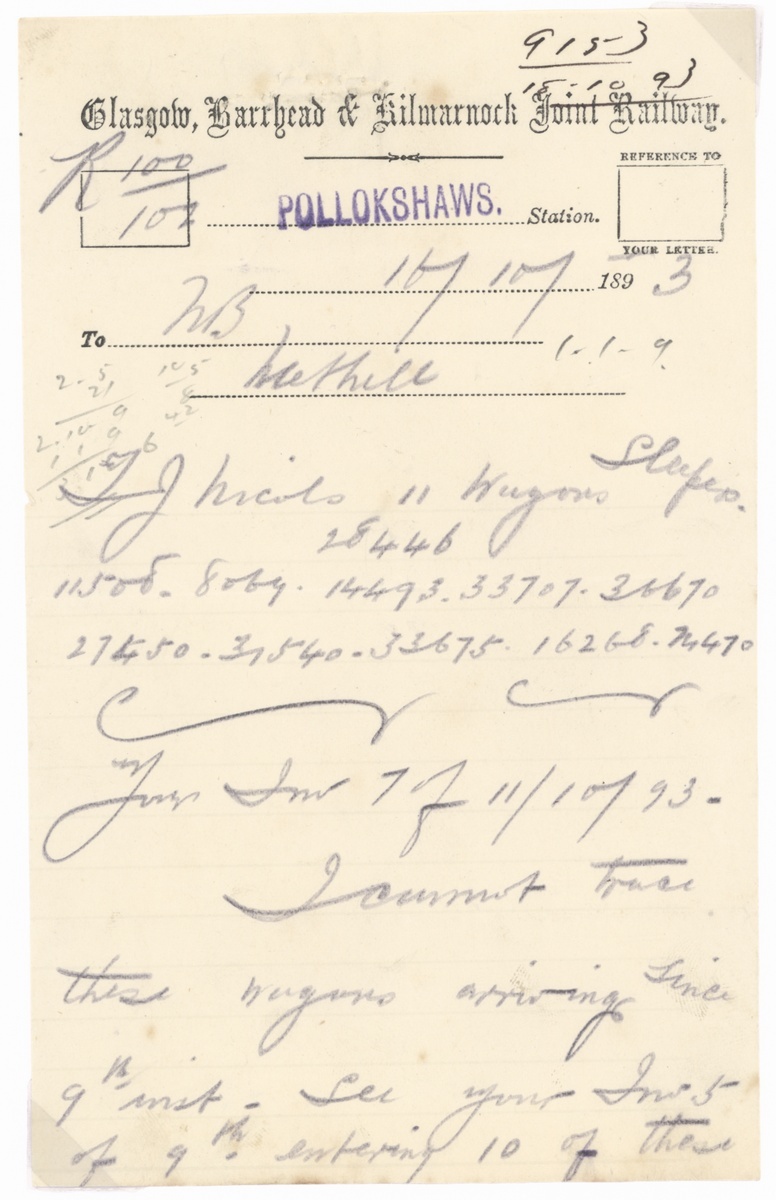 9153
15-10 93
Glasgow, Barrhead & Kilmarnock Joint Railway.
R 100
102
POLLOKSHAWS. Station.
REFERENCE TO
YOUR LETTER.
16/10/1893
To NB
1-1-9
Methill
J Nicols 11 Wagons Sleepers.
28446
11508. 8069. 14493. 33707. 36670
27450. 31540. 33675. 16268. 24470
Your Inv 7 of 11/10/93-
I cannot trace
these wagons arriving since
9th inst - See your Inv 5
of 9th entering 10 of these